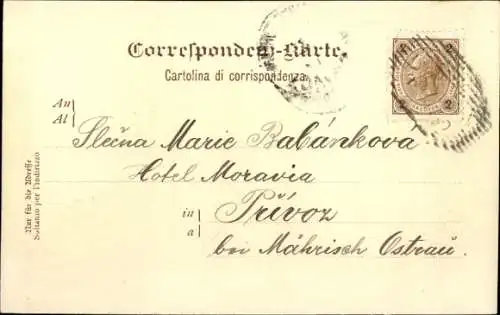 Correspondenz-Karte.
Cartolina di corrispondenza.
2 2
2 2
An
Al
Slečna Marie Babánková
Hotel Moravia
in
a
Přívoz
bei Mährisch Ostrau.
Nur für die Adresse
Soltanto per l'indirizzo